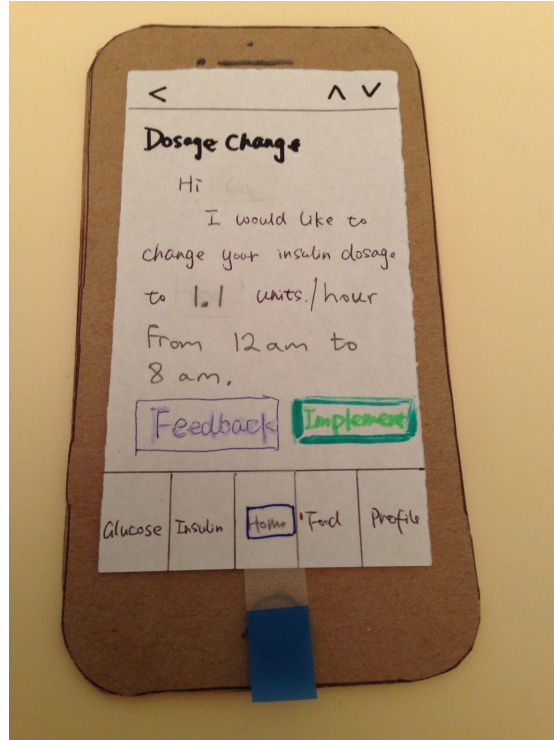 <
∧ ∨
Dosage Change
Hi
I would like to
change your insulin dosage
to 1.1 units./hour
From 12am to
8 am.
Feedback
Implement
Glucose
Insulin
Home
Food
Profile